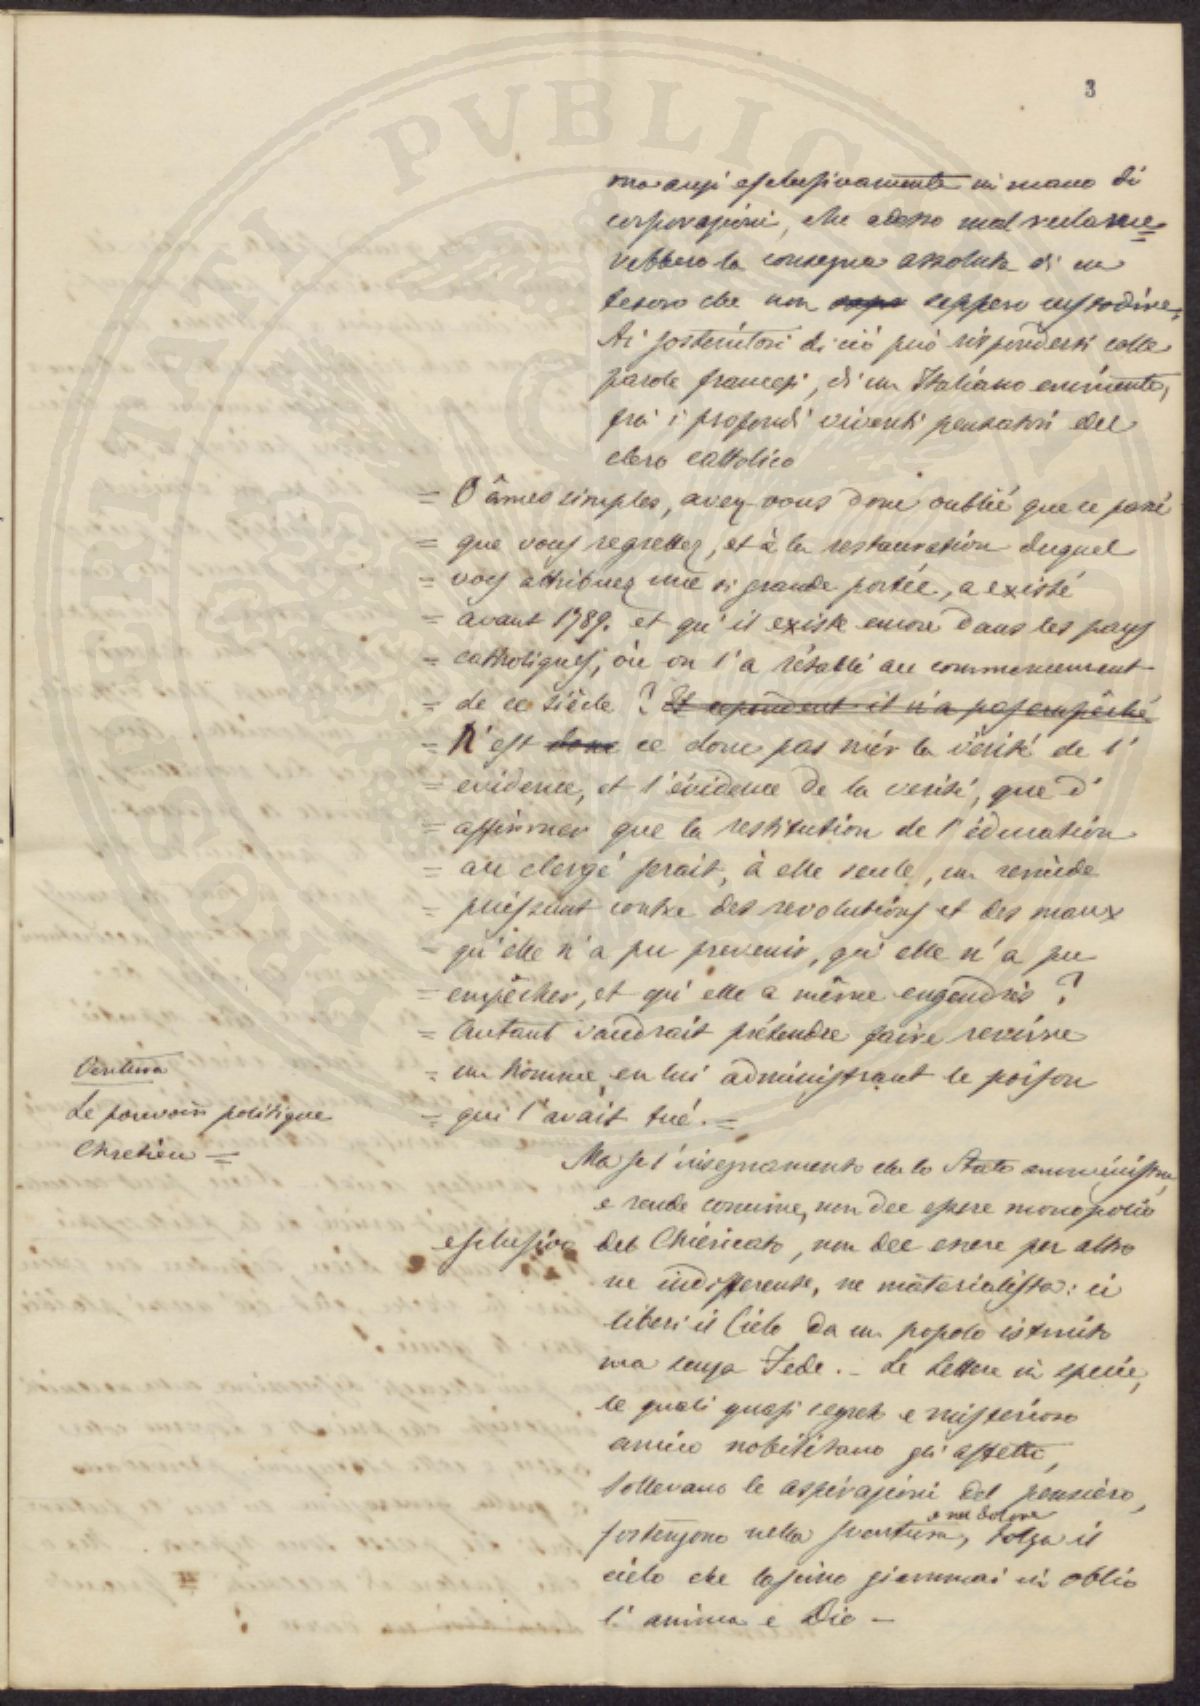 3
ma anzi esclusivamente in mano di
corporazioni, che adesso mal reclame=
rebbero la consegna assoluta di un
tesoro che non sepp seppero custodire.
Ai sostenitori di ciò può rispondersi colle
parole francesi, di un Italiano eminente,
fra i profondi viventi pensatori del
clero cattolico
= O âmes simples, avez-vous donc oublié que ce passé
= que vous regrettez, et à la restauration duquel
= vous attribuez une si grande portée, a existé
= avant 1789. et qu'il existe encore dans les pays
= catholiques, où on l'a rétabli au commencement
= de ce siècle ? Et cependent il n'a pas empêché
= N'est donc ce donc pas nier la vérité de l'
= evidence, et l'évidence de la verité, que d'
= affirmer que la restitution de l'éducation
= au clergé serait, à elle seule, un remède
= puissant contre des revolutions et des maux
= qu'elle n'a pu prevenir, qu'elle n'a pu
= empêcher, et qu'elle a même engendrés ?
= Autant vaudrait prétendre faire revivre
= un homme en lui administrant le poison
= qui l'avait tué. =
Ventura
Le pouvoir politique
Chretien =
Ma se l'insegnamento che lo Stato amministra,
e rende comune, non dee essere monopolio
esclusivo del Chiericato, non dee essere per altro
ne indifferente, ne materialista: ci
liberi il Cielo da un popolo istruito
ma senza Fede. - Le Lettere in specie,
le quali quasi segreto e misterioso
amico nobilitano gli affetti,
sollevano le aspirazioni del pensiero,
e nel dolore
sostengono nella sventura, tolga il
cielo che lascino giammai in oblio
l'anima e Dio -
PVBLICA